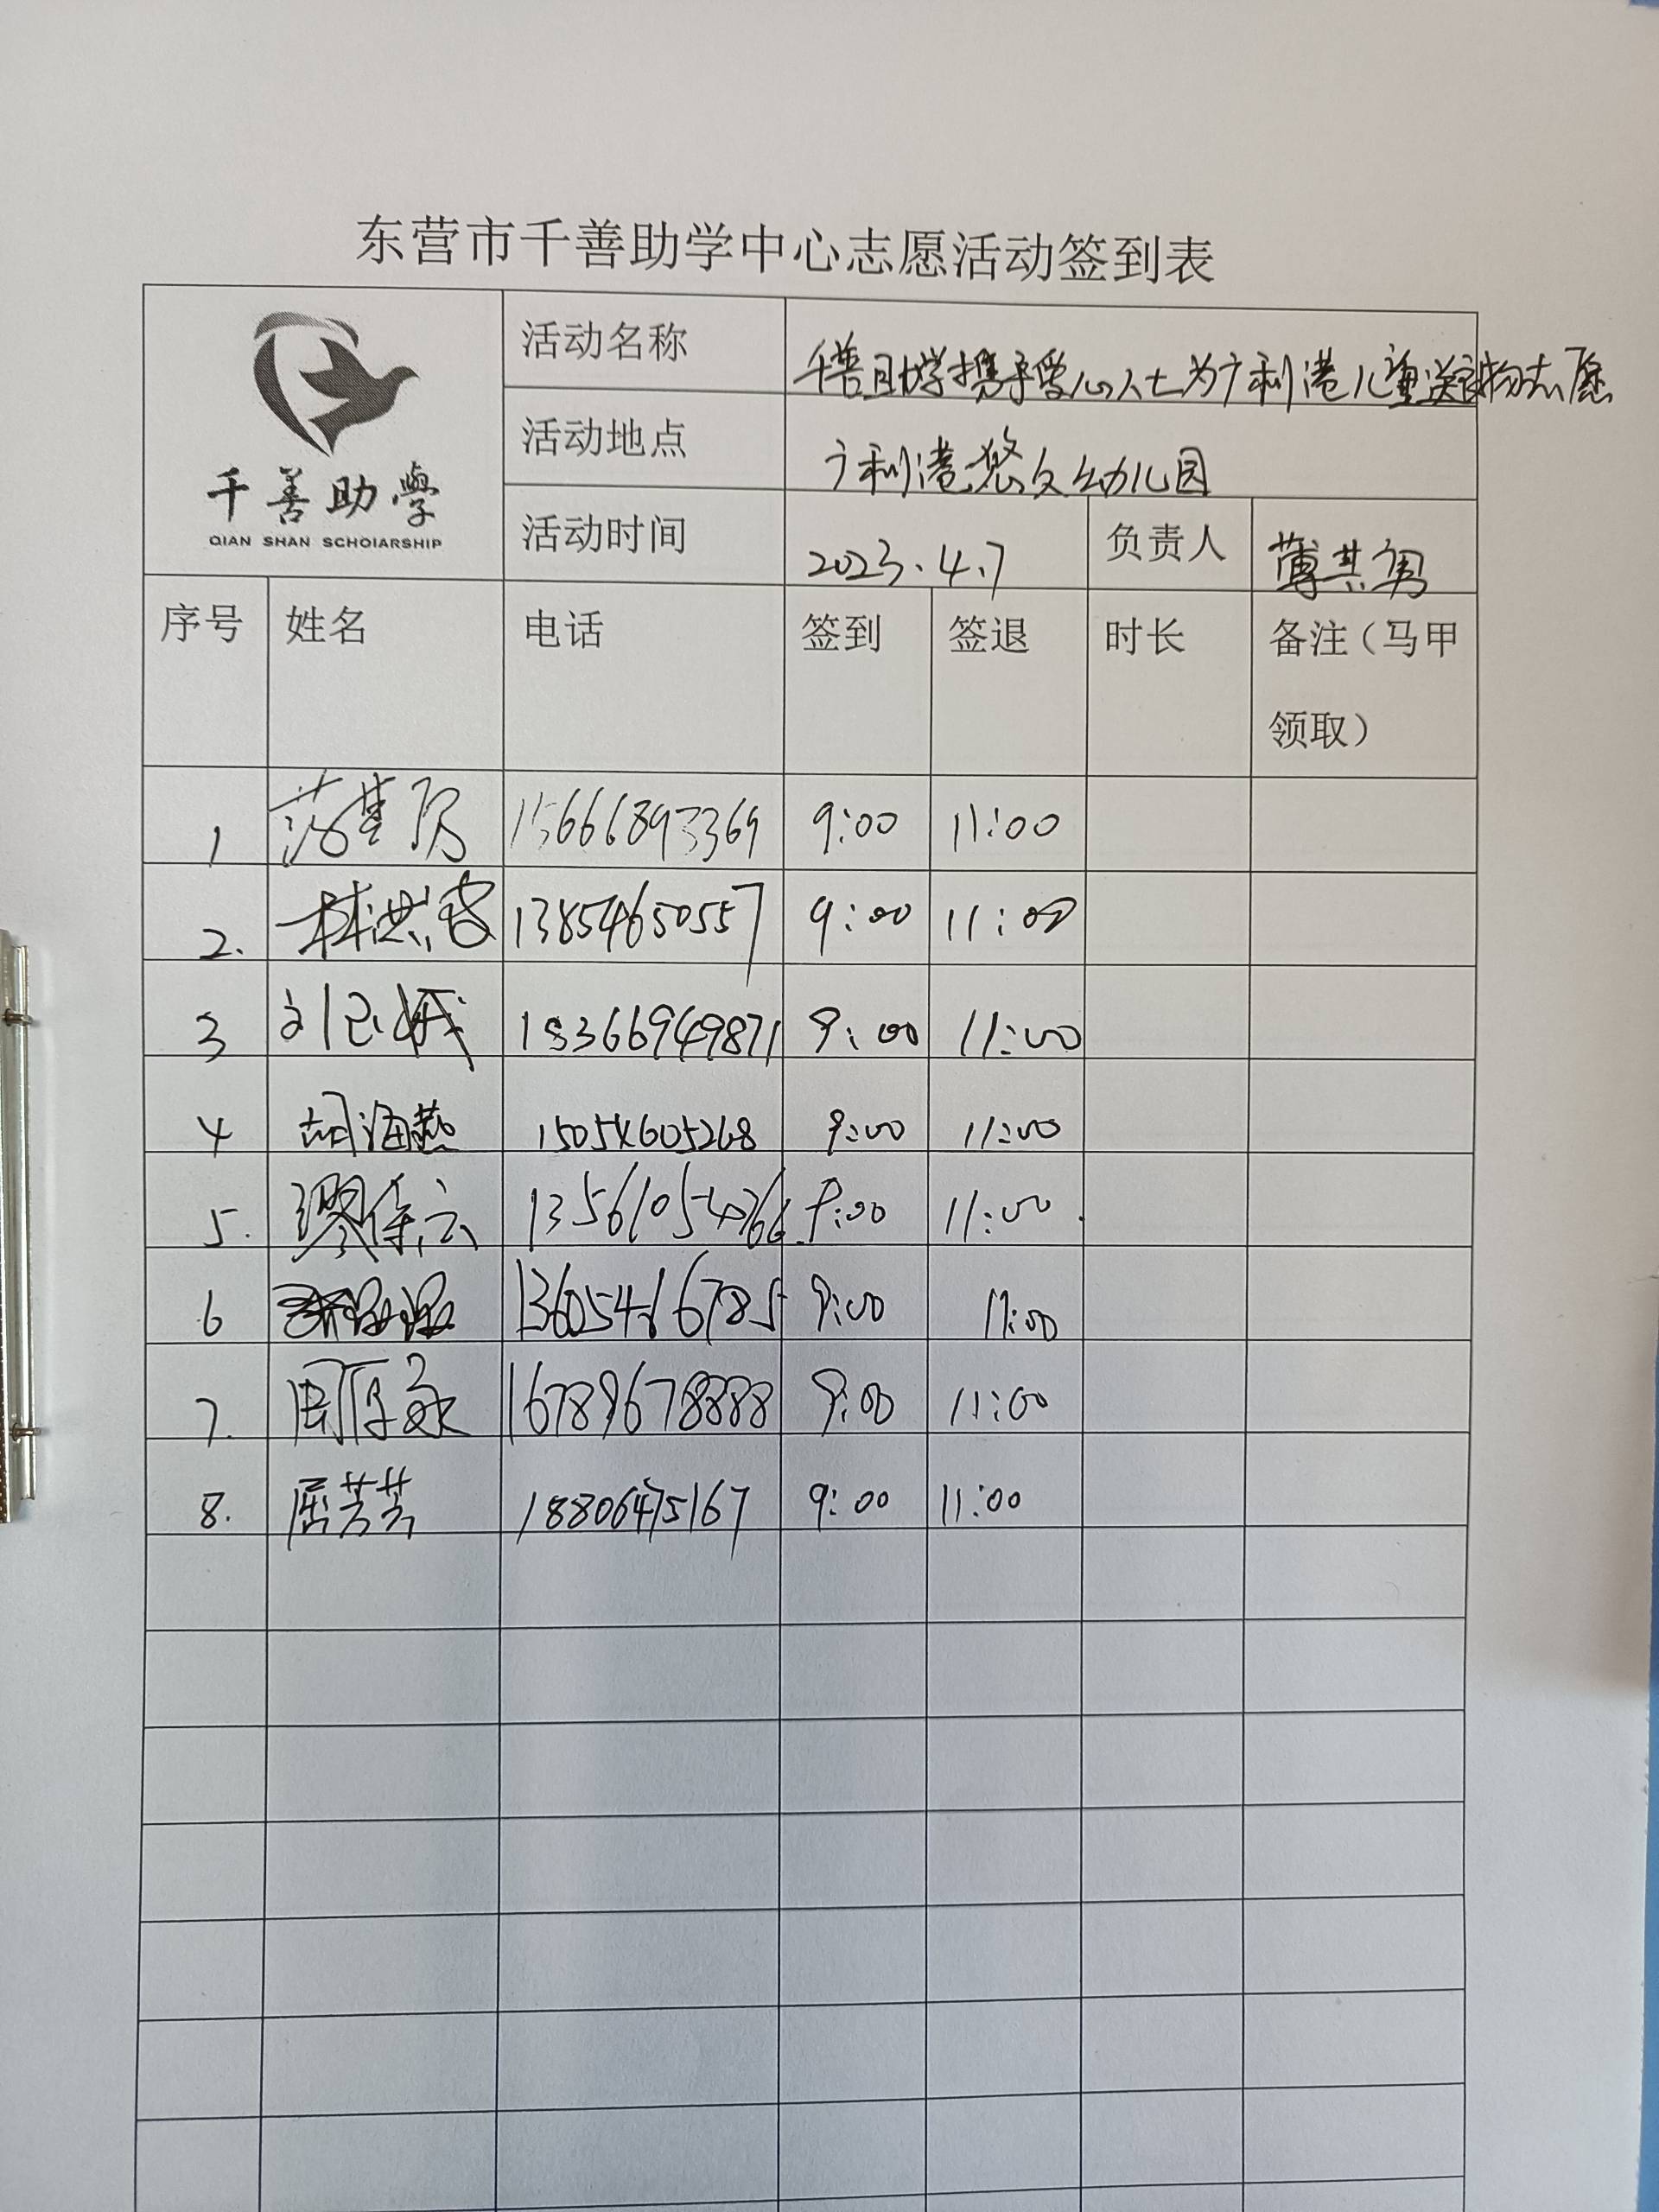 东营市千善助学中心志愿活动签到表
千善助學
QIAN SHAN SCHOIARSHIP
活动名称 千善助学携手爱心人士为广利港儿童送礼物志愿
活动地点 广利港悠文幼儿园
活动时间 2023.4.7 负责人 薄其勇
序号 姓名 电话 签到 签退 时长 备注（马甲
领取）
1 15666893369 9:00 11:00
2. 13854650557 9:00 11:00
3 9:00 11:00
4 胡海燕 15054605268 9:00 11:00
5. 9:00 11:00
6 13605467785 9:00 11:00
7. 16789678888 9:00 11:00
8. 屈芳芳 18806475167 9:00 11:00